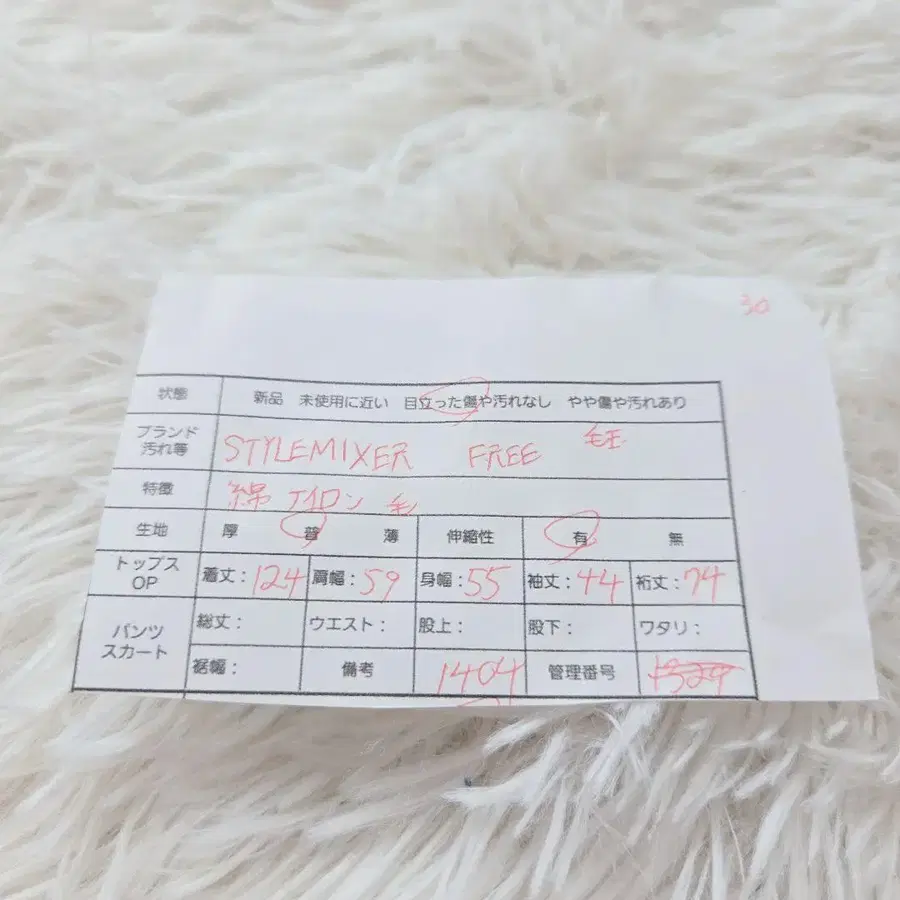 30
状態 新品 未使用に近い 目立った傷や汚れなし やや傷や汚れあり
ブランド 汚れ等 STYLEMIXER FREE 毛玉
特徴 綿 ナイロン 毛
生地 厚 普 薄 伸縮性 有 無
トップス OP 着丈:124 肩幅:59 身幅:55 袖丈:44 裄丈:74
パンツ スカート 総丈: ウエスト: 股上: 股下: ワタリ:
裾幅: 備考 1404 管理番号